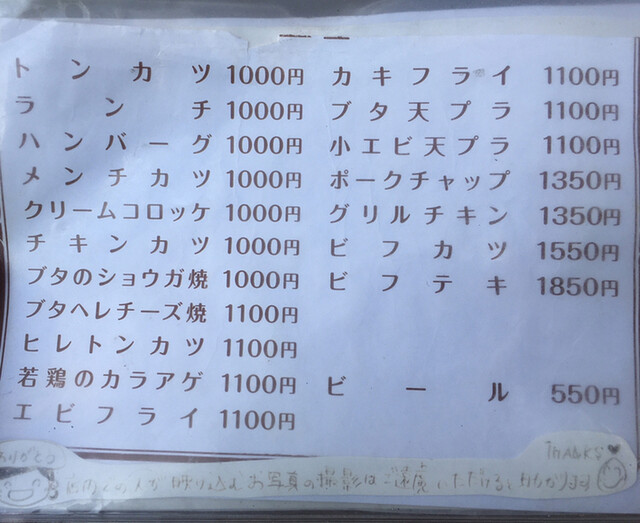 トンカツ 1000円
ランチ 1000円
ハンバーグ 1000円
メンチカツ 1000円
クリームコロッケ 1000円
チキンカツ 1000円
ブタのショウガ焼 1000円
ブタヘレチーズ焼 1100円
ヒレトンカツ 1100円
若鶏のカラアゲ 1100円
エビフライ 1100円
カキフライ 1100円
ブタ天プラ 1100円
小エビ天プラ 1100円
ポークチャップ 1350円
グリルチキン 1350円
ビフカツ 1550円
ビフテキ 1850円
ビール 550円
ありがとう
THANKS
店内での人が映り込むお写真の撮影はご遠慮いただけると